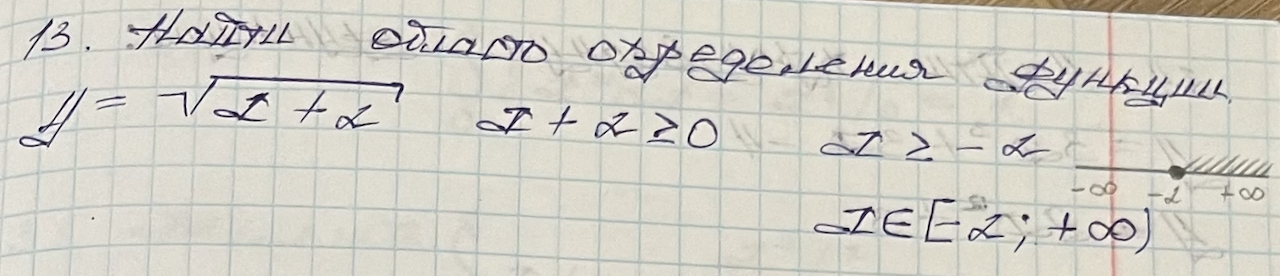 13. Найти область определения функции.
y = √(x + 2)   x + 2 ≥ 0   x ≥ -2
-∞   -2   +∞
x ∈ [-2; +∞)